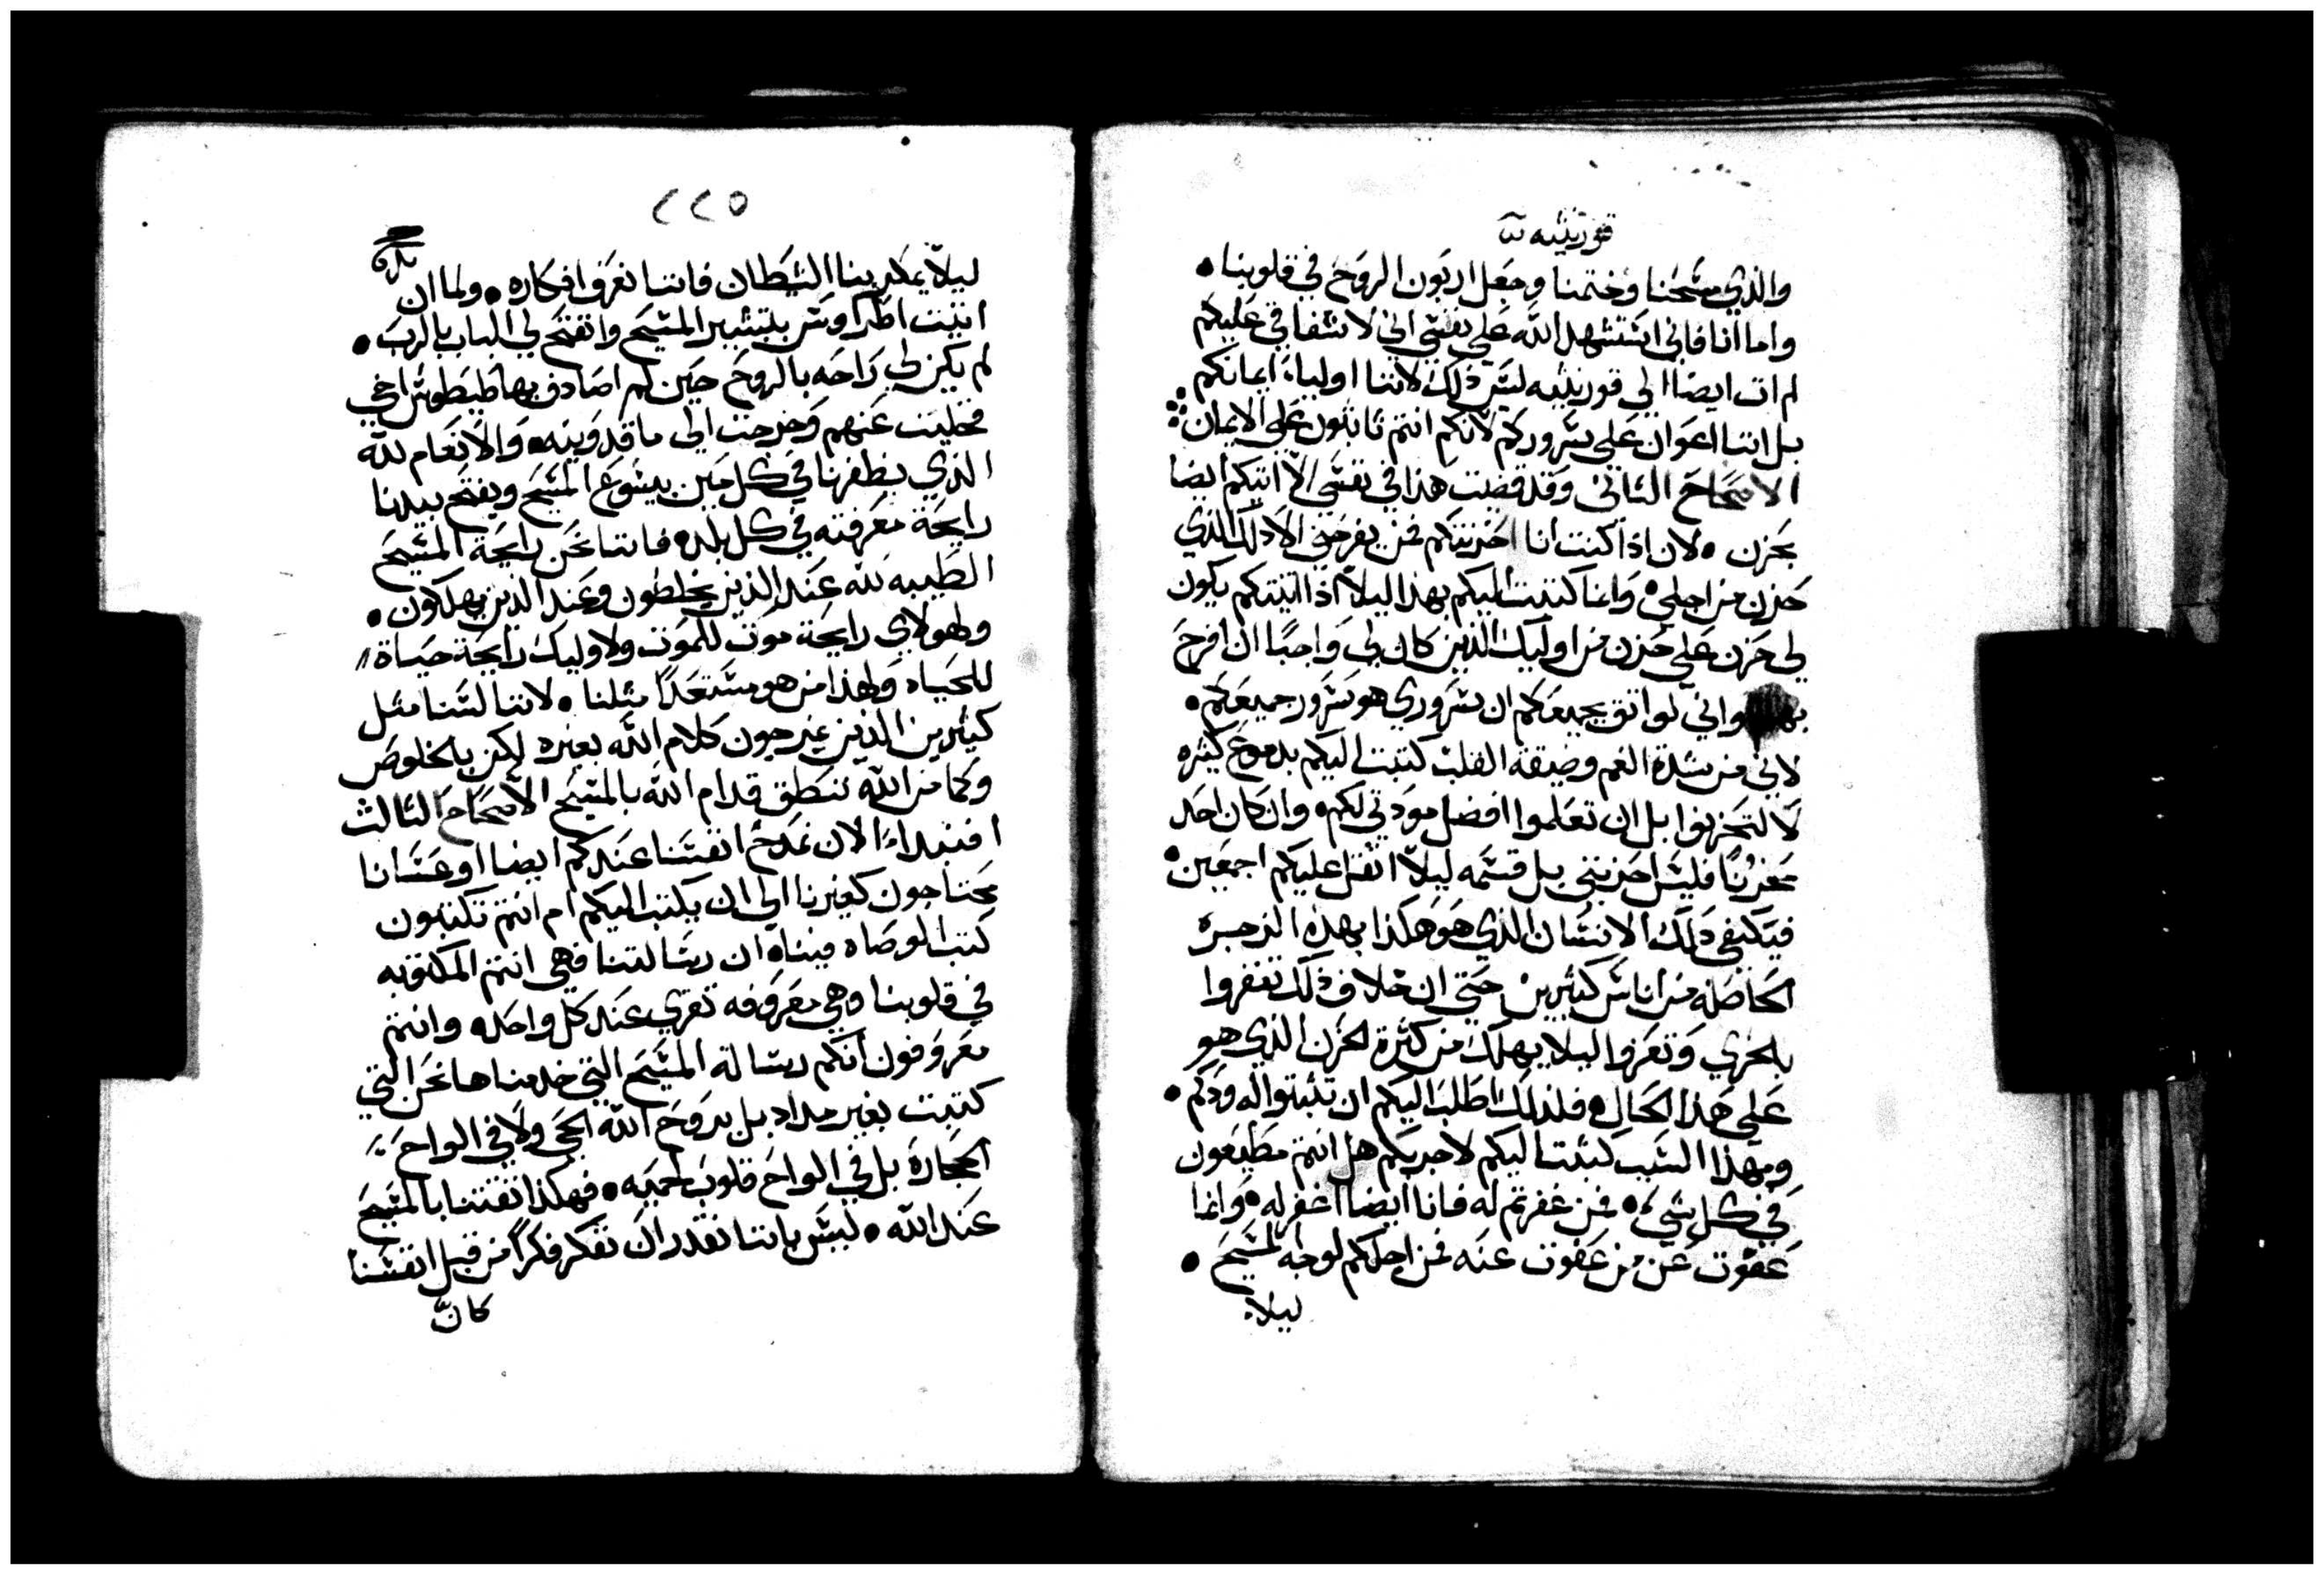 قورنثيه ٢
والذي مسحنا وختمنا وجعل اربون الروح في قلوبنا •
واما انا فاني استشهد الله على نفسي اني لاشفاقي عليكم
لم ات ايضا الي قورنثيه ليس ذلك لاننا اولياء ايمانكم
بل اننا اعوان علي سروركم لانكم انتم ثابتون علي الايمان
الاصحاح الثاني وقد قضيت هذا في نفسي الا اتيكم ايضا
بحزن • لان اذا كنت انا احزنتكم فمن يفرحني الا ذلك الذي
حزن من اجلي • وانما كتبت اليكم بهذا ليلا اذا اتيتكم يكون
لي حزن علي حزن من اوليك الذين كان لي واجبا ان افرح
واني لواثق بجميعكم ان سروري هو سرور جميعكم •
لاني من شدة الغم وضيقة القلب كتبت اليكم بدموع كثيره
لا لتحزنوا بل ان تعلموا افضل مودتي لكم • وان كان احد
محزنا فليس احزنني بل قسمه ليلا اثقل عليكم اجمعين •
فيكفي ذلك الانسان الذي هو هكذا بهذه الزجره
الحاصله من اناس كثيرين حتي ان خلاف ذلك تغفروا
بلحري وتعزوا ليلا يهلك من كثرة الحزن الذي هو
علي هذا الحال • فلذلك اطلب اليكم ان تثبتوا له ودكم •
وبهذا السبب كتبت اليكم لاجربكم هل انتم مطيعون
في كل شي • فمن غفرتم له فانا ايضا اغفر له • وانما
عفوت عن من عفوت عنه فمن اجلكم لوجه المسيح •
ليلا
٢٢٥
ليلا يمكر بنا الشيطان فاننا نعرف افكاره • ولما ان
اتيت اطراوس بتبشير المسيح وانفتح لي الباب بالرب •
لم يكن لي راحه بالروح حين لم اصادف بها طيطوس اخي
فخليت عنهم وخرجت الي ماقدونيه • والانعام لله
الذي يظفرنا في كل حين بيسوع المسيح ويفتح بيدنا
رايحة معرفته في كل بلده فاننا نحن رايحة المسيح
الطيبه لله عند الذين يخلطون وعند الذين يهلكون •
ولهولاي رايحة موت للموت ولاوليك رايحة حياة
للحياه ولهذا من هو مستعدا مثلنا • لاننا لسنا مثل
كثيرين الذين يمزجون كلام الله بغيره لكن بالخلوص
وكما من الله ننطق قدام الله بالمسيح الاصحاح الثالث
افنبداء الان نمدح انفسنا عندكم ايضا او عسانا
محتاجون كغيرنا الي ان يكتب اليكم ام انتم تكتبون
كتب الوصاه فيناه ان رسالتنا فهي انتم المكتوبه
في قلوبنا وهي معروفه تقري عند كل واحد • وانتم
معروفون انكم رسالة المسيح التي خدمناها نحن التي
كتبت بغير مداد بل بروح الله الحي ولا في الواح
الحجاره بل في الواح قلوب لحميه • فهكذا ثقتنا بالمسيح
عند الله • ليس باننا نقدر ان نفكر فكرا من قبل انفسنا
كان